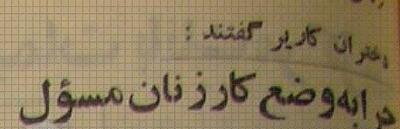 دختران کاریر گفتند :
در ابه وضع کار زنان مسؤل